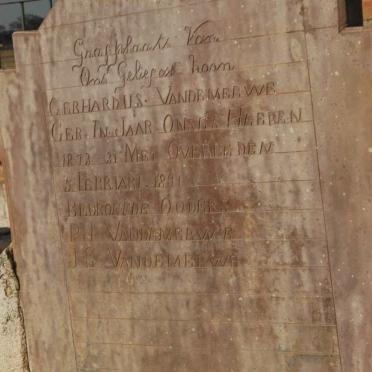 Grafplaats Van
Ons Geliefde Zoon
GERHARDUS. VANDEMERWE
GEB. IN. JAAR ONSES HEEREN
1872 21 MEI OVERLEDEN
5 FEBRUARI. 1891
BEDROEFDE OUDERS
VANDEMERWE
VANDEMERWE